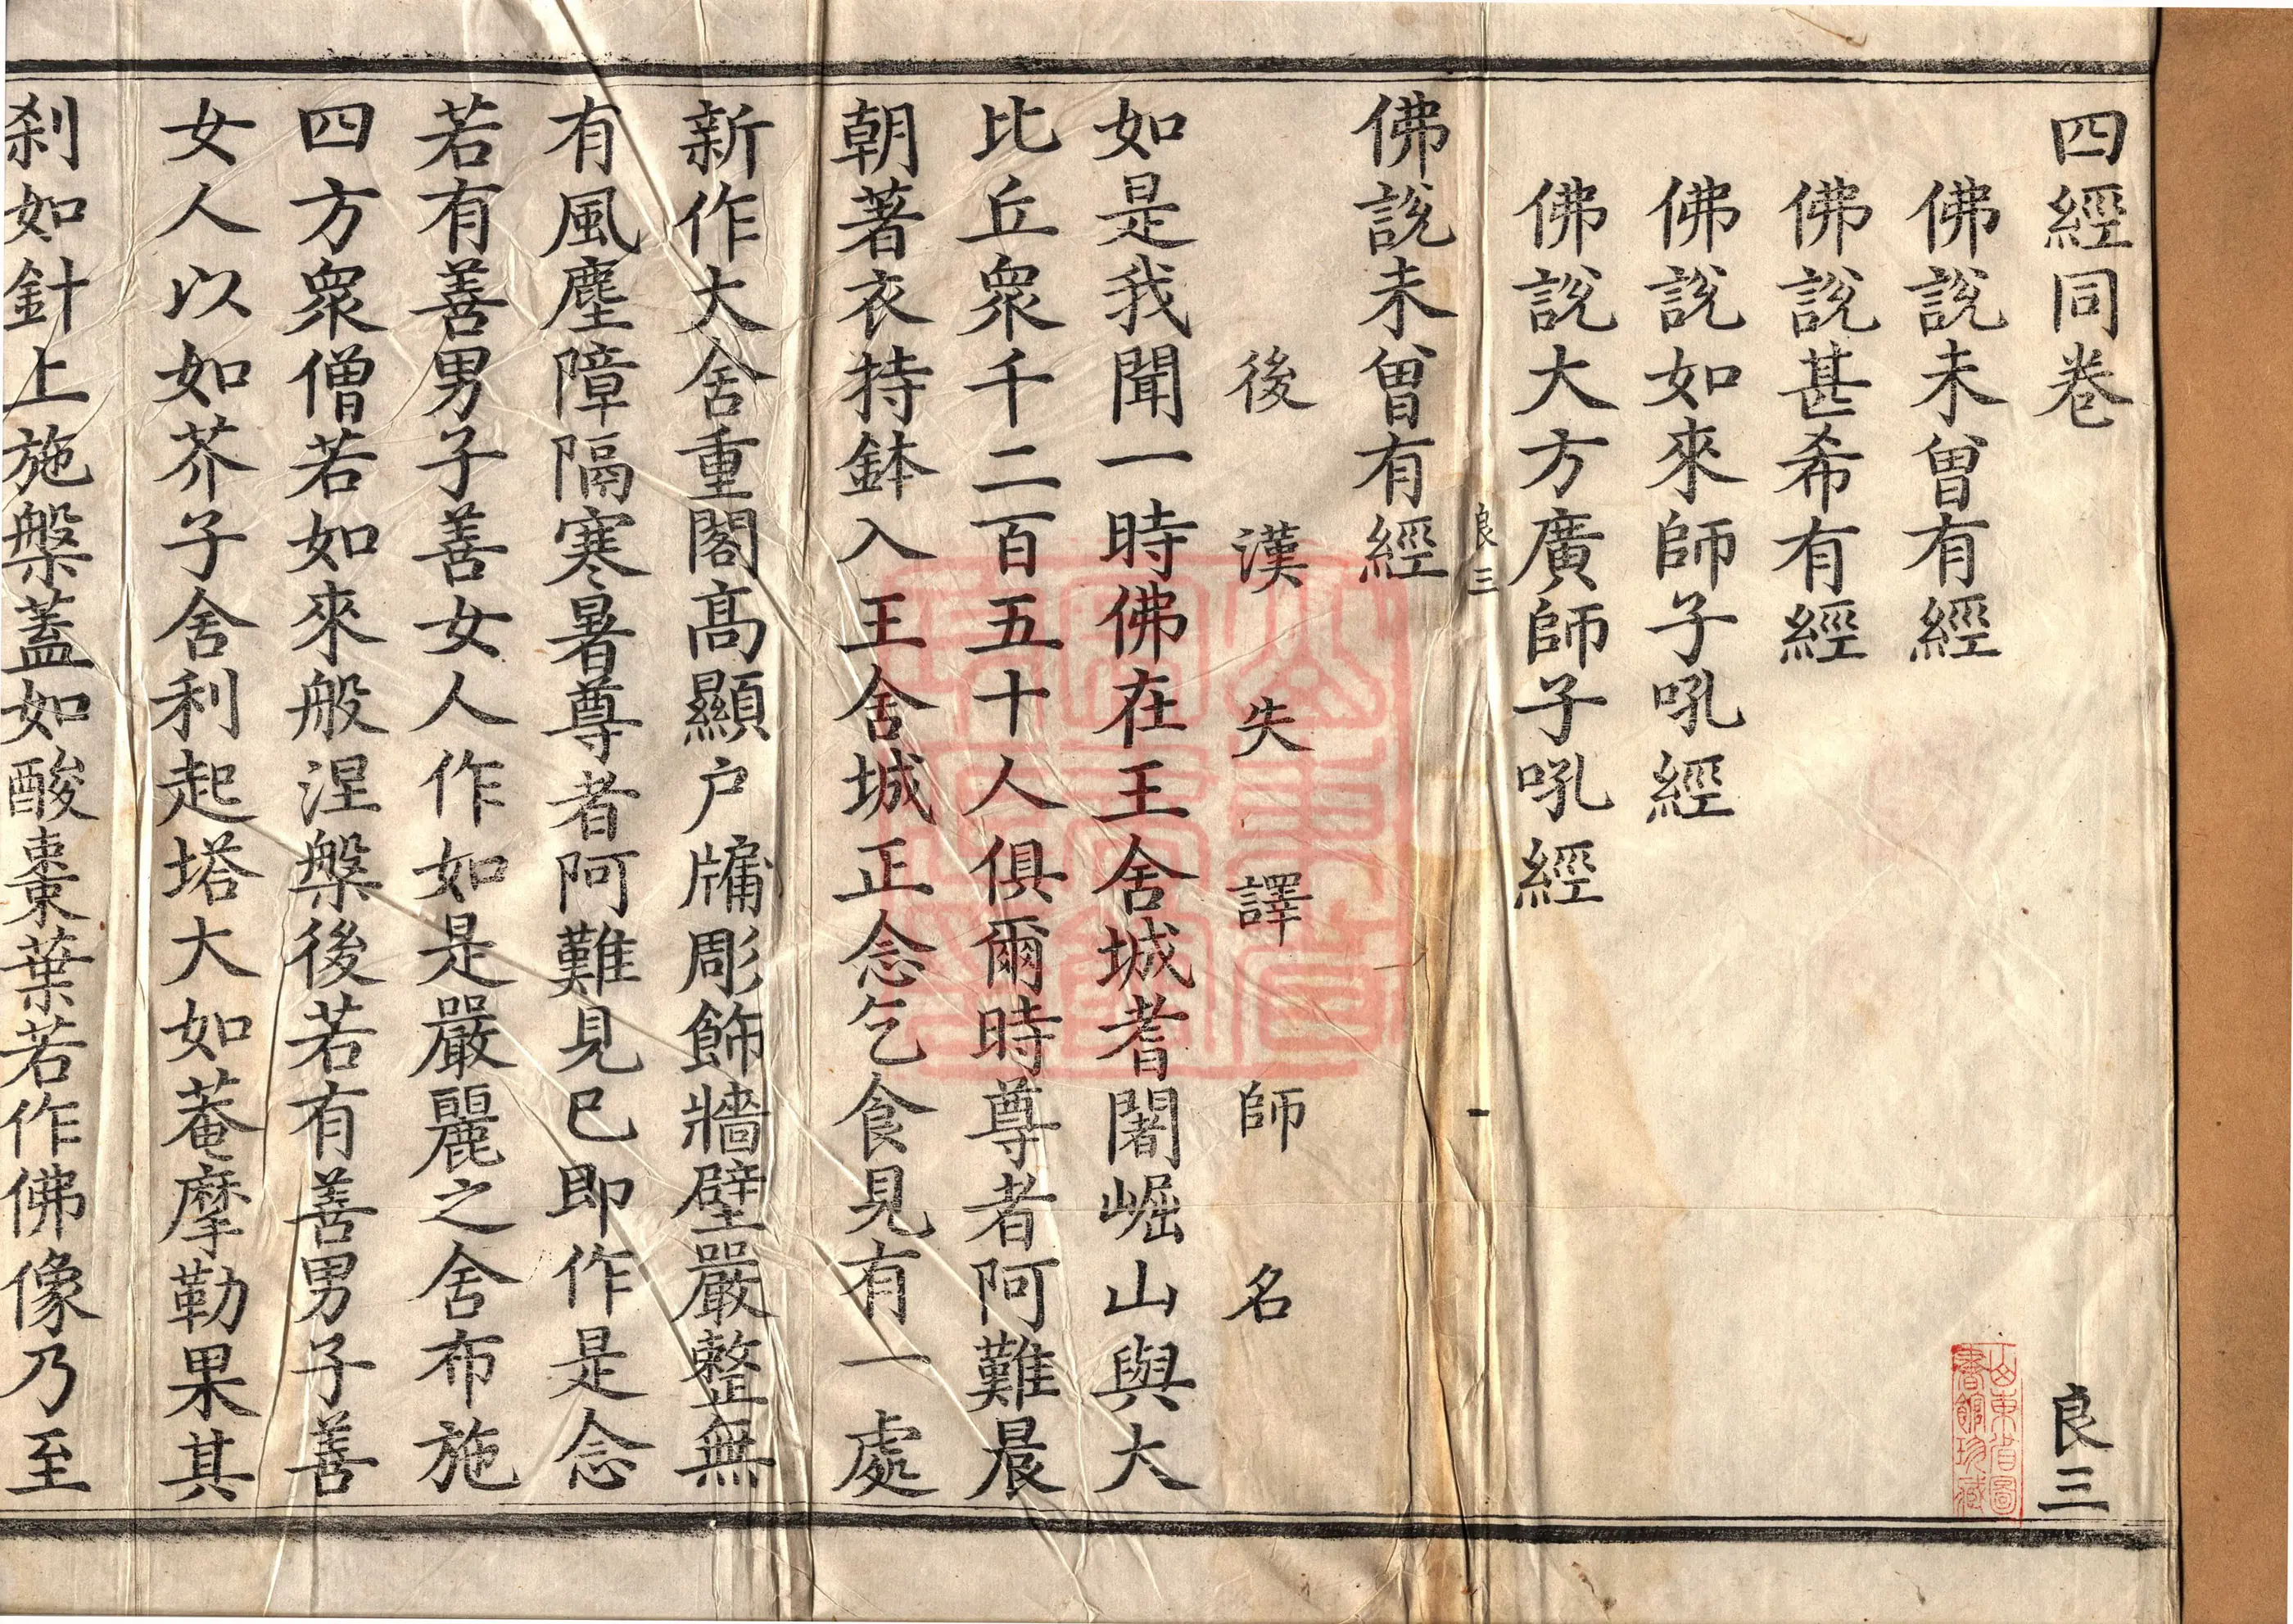 四經同卷 良三
佛說未曾有經
佛說甚希有經
佛說如來師子吼經
佛說大方廣師子吼經
良三 一
佛說未曾有經
後漢失譯師名
如是我聞一時佛在王舍城耆闍崛山與大
比丘眾千二百五十人俱爾時尊者阿難晨
朝著衣持鉢入王舍城正念乞食見有一處
新作大舍重閣高顯户牖彫飾牆壁嚴整無
有風塵障隔寒暑尊者阿難見已即作是念
若有善男子善女人作如是嚴麗之舍布施
四方眾僧若如來般涅槃後若有善男子善
女人以如芥子舍利起塔大如菴摩勒果其
刹如針上施槃蓋如酸棗葉若作佛像乃至
山東省圖
書館珍藏